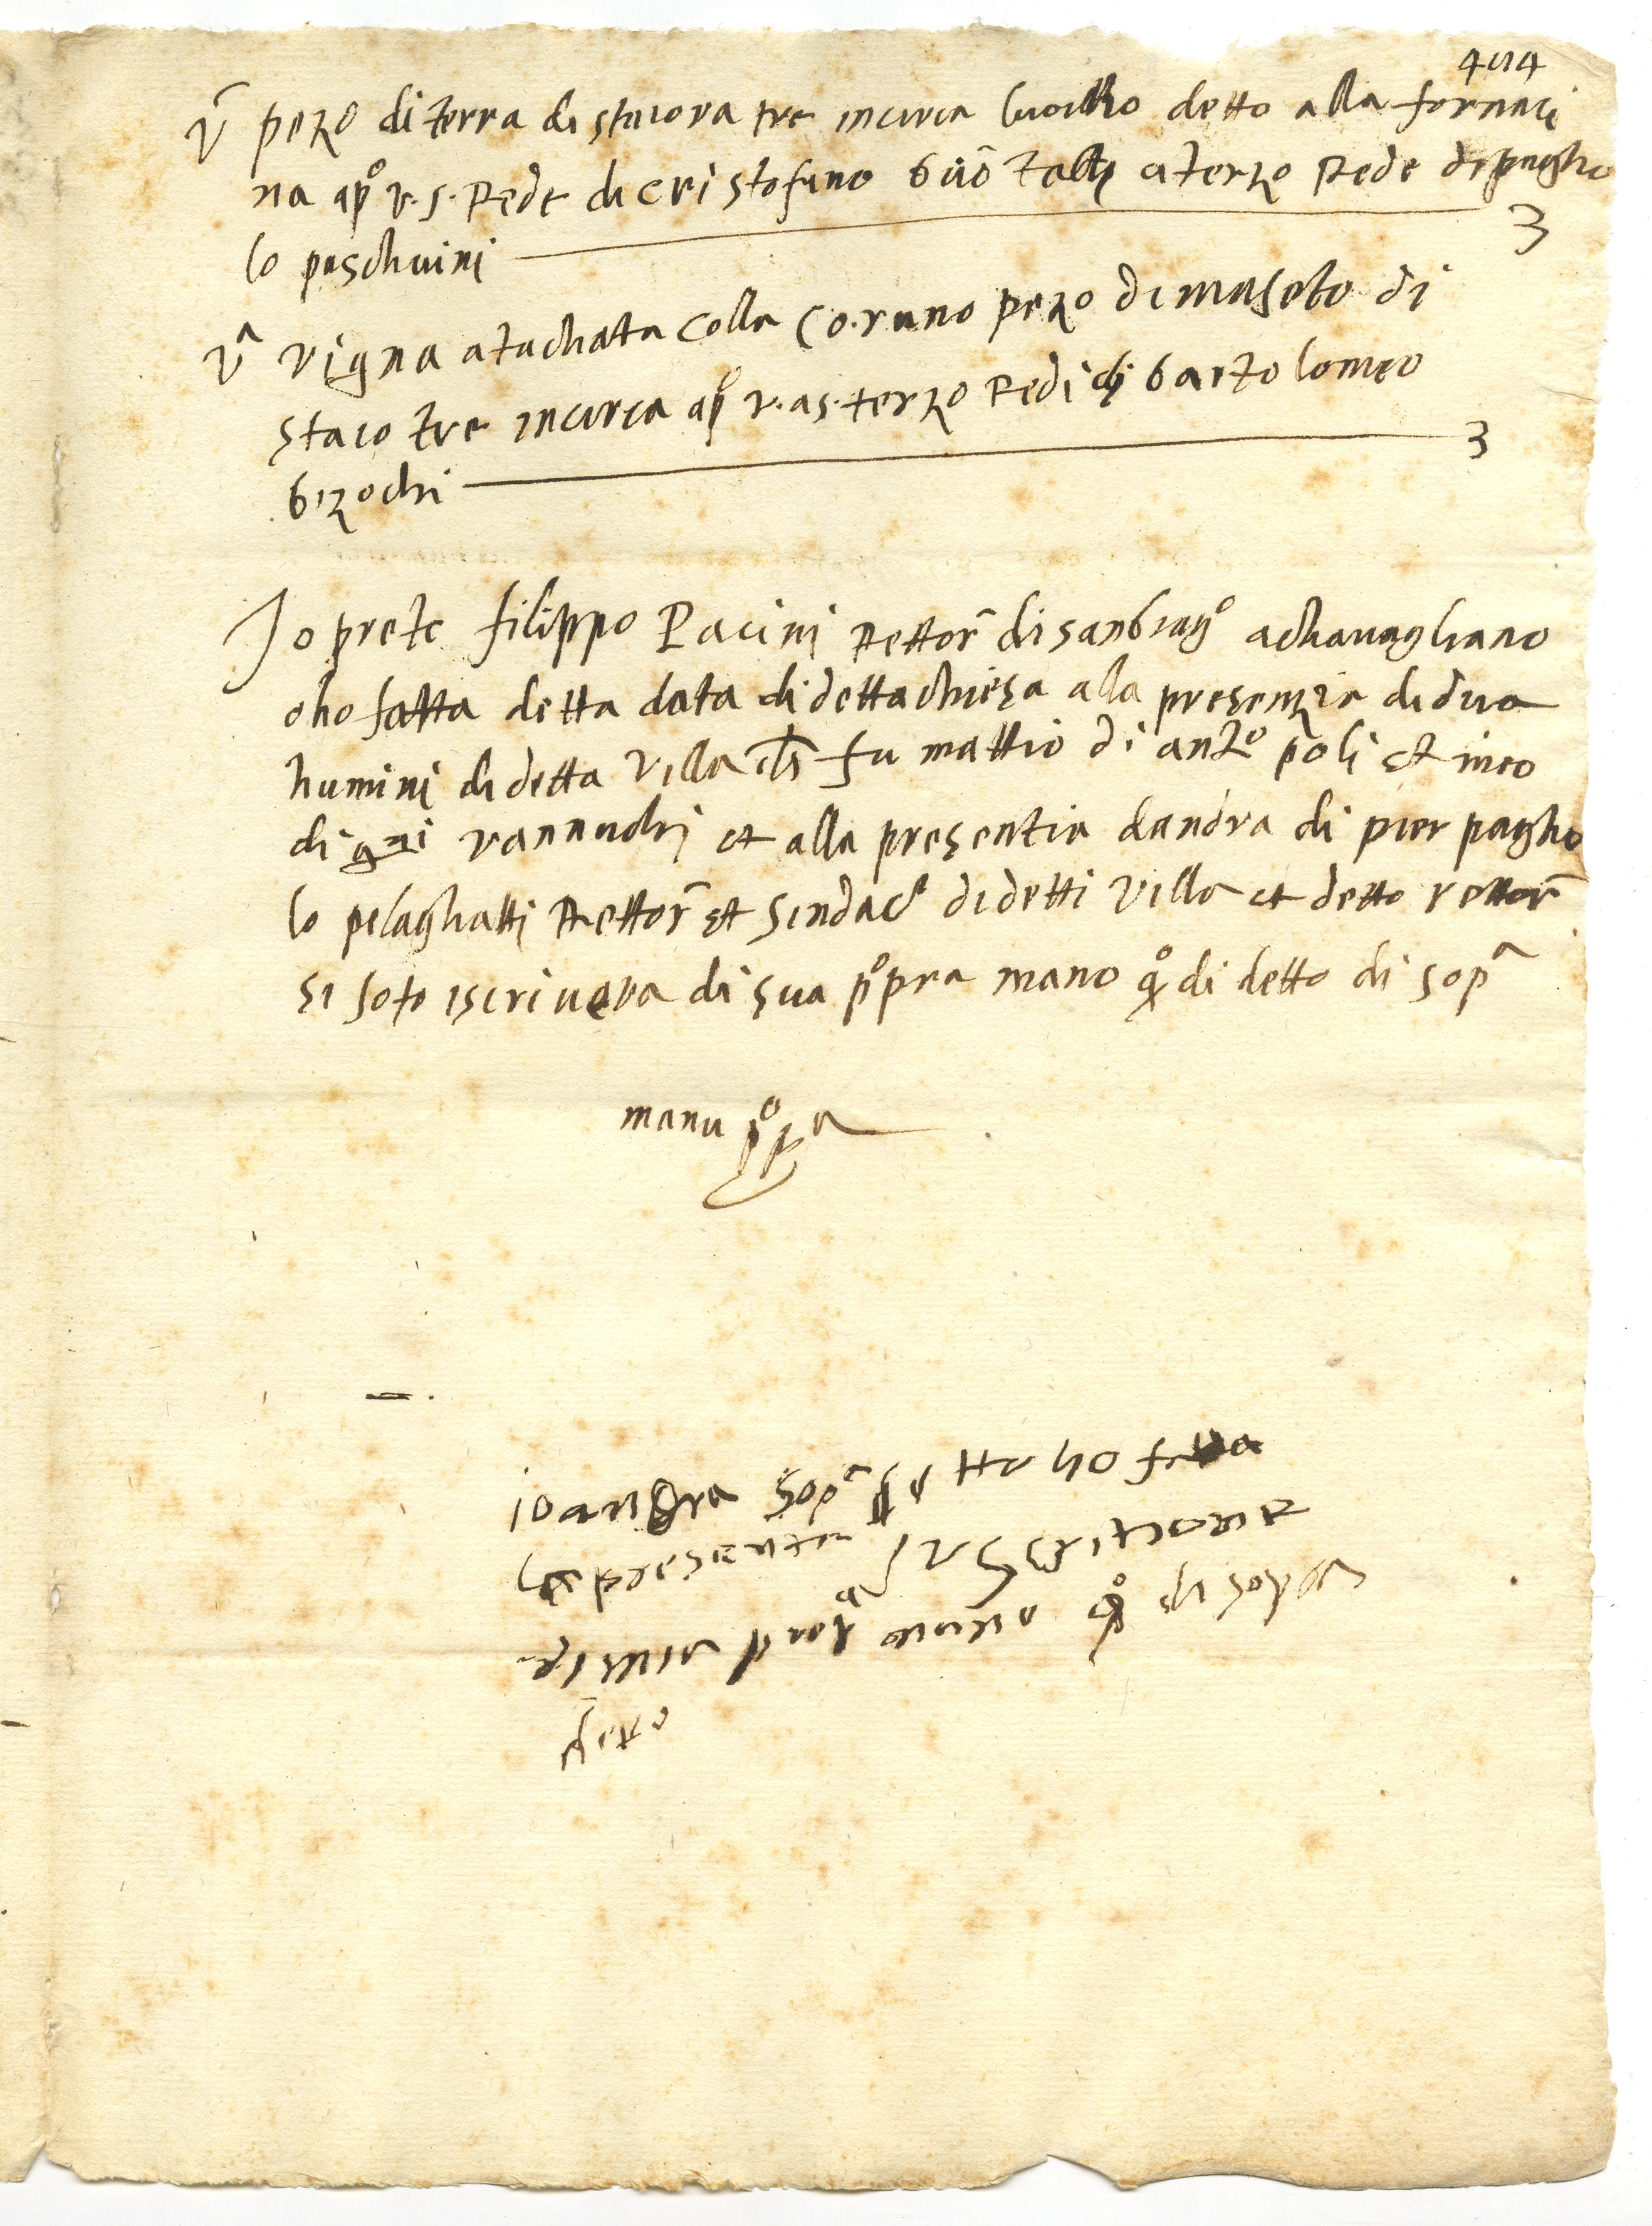 404
Vº pezo di terra di staiora tre incirca luocho detto alla fornaci
na apº v. s. Rede di cristofano a terzo Rede di pagho
lo paschuini 3
Vª vigna atachatta colla co. r uno pezo di maseto di
staio tre incirca apº v. as. terzo Redi di bartolomeo
bizochi 3
Jo prete filippo Pacini Rettor di san biagº a chavagliano
o ho fatta detta data di detta chiesa alla presenzia di dua
humini di detta villa fu mattio di antº poli et meo
di vannuchi et alla presentia dandra di pier pagho
lo pelaghatti Rettor et sindacº di detti villa et detto rettor
si soto iscrivera di sua ppra mano qº di detto di sopª
manu ppª
io andra sopª detto ho fatta
la presente
di mia mano qº di sopra
detto